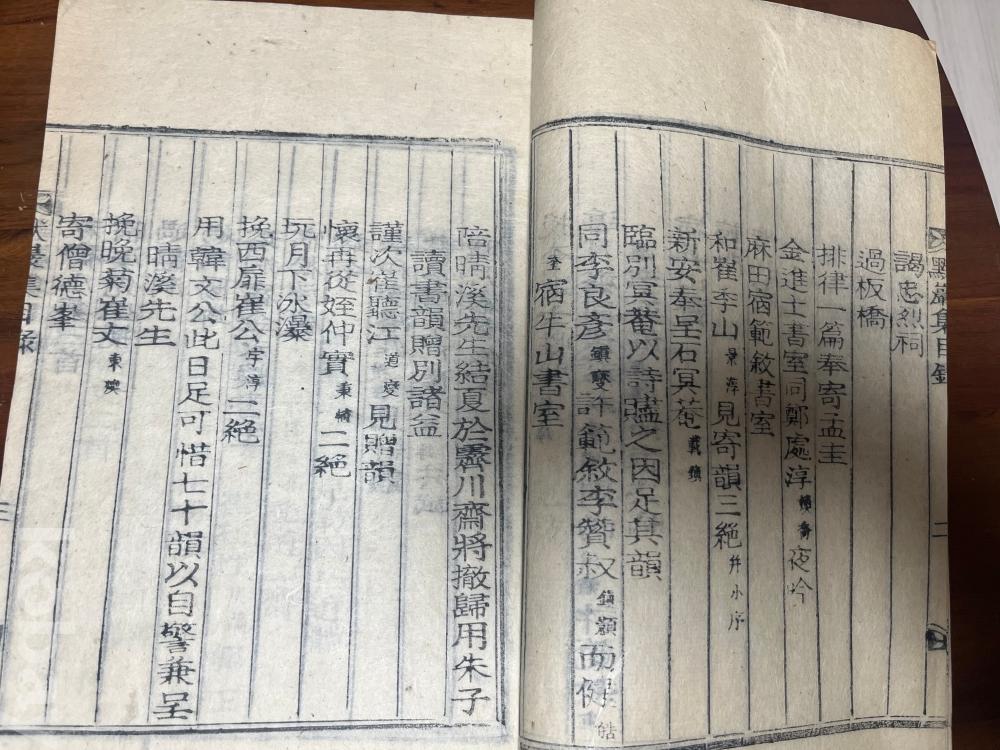 默巖集目錄
二
謁忠烈祠
過板橋
排律一篇奉寄孟圭
金進士書室同鄭處淳夜吟
麻田宿範敘書室
和崔季山景淳見寄韻三絶并小序
新安奉呈石冥菴載鎮
臨別冥菴以詩贐之因足其韻
同李良彥許範敘李贊叔而健皓
宿牛山書室
陪晴溪先生結夏於霽川齋將撤歸用朱子
讀書韻贈別諸益
謹次崔聽江道燮見贈韻
懷再從姪仲實秉二絶
玩月下氷瀑
挽西扉崔公宇淳二絶
用韓文公此日足可惜七十韻以自警兼呈
晴溪先生
挽晩菊崔丈東
寄僧德峯
三